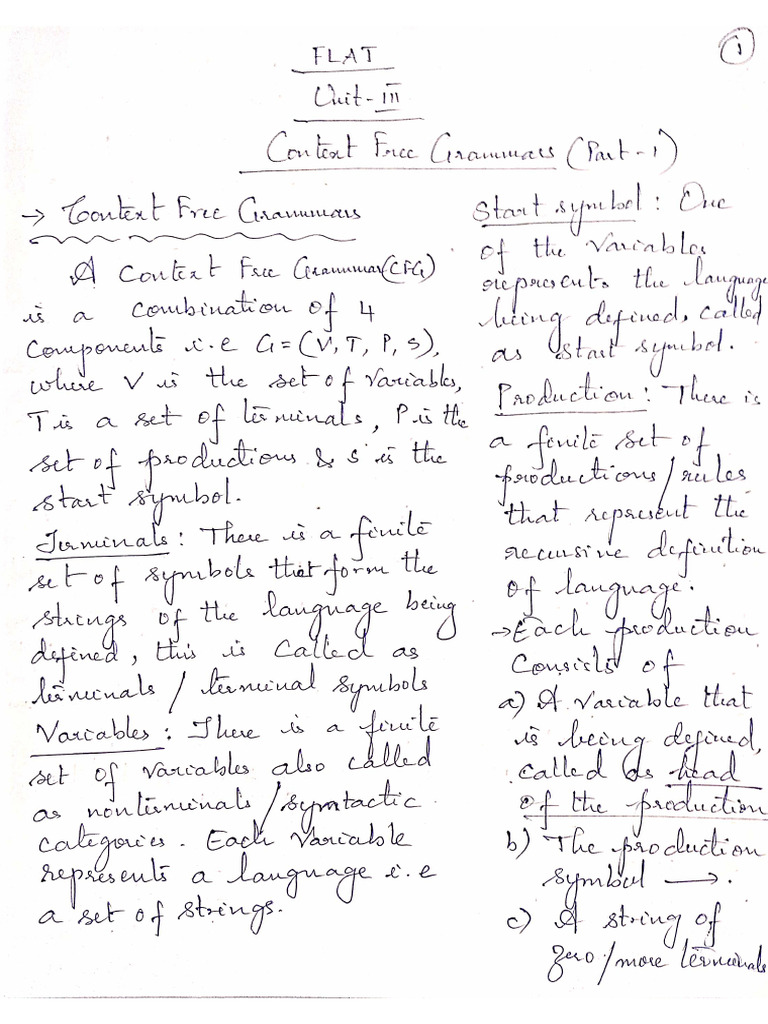 1
FLAT
Unit-III
Context Free Grammars (Part-1)
→ Context Free Grammars
A Context Free Grammar(CFG)
is a combination of 4
components i.e G=(V,T,P,S),
where V is the set of variables,
T is a set of terminals, P is the
set of productions & S is the
start symbol.
Terminals: There is a finite
set of symbols that form the
strings of the language being
defined, this is called as
terminals/terminal symbols
Variables: There is a finite
set of variables also called
as nonterminals/syntactic
categories. Each variable
represents a language i.e
a set of strings.
Start symbol: One
of the variables
represents the language
being defined, called
as start symbol.
Production: There is
a finite set of
productions/rules
that represent the
recursive definition
of language.
→ Each production
consists of
a) A variable that
is being defined,
called as head
of the production
b) The production
symbol →.
c) A string of
zero/more terminals